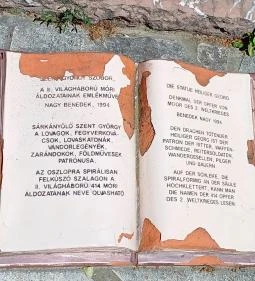 SZENT GYÖRGY SZOBOR,
A II. VILÁGHÁBORÚ MÓRI
ÁLDOZATAINAK EMLÉKMŰVE
NAGY BENEDEK, 1994.
SÁRKÁNYÖLŐ SZENT GYÖRGY
A LOVAGOK, FEGYVERKOVÁ-
CSOK, LOVASKATONÁK,
VÁNDORLEGÉNYEK,
ZARÁNDOKOK, FÖLDMŰVESEK
PATRÓNUSA.
AZ OSZLOPRA SPIRÁLISAN
FELKÚSZÓ SZALAGON A
II. VILÁGHÁBORÚ 414 MÓRI
ÁLDOZATÁNAK NEVE OLVASHATÓ.
DIE STATUE HEILIGER GEORG
DENKMAL DER OPFER VON
MOOR DES 2. WELTKRIEGES
BENEDEK NAGY 1994
DEN DRACHEN TÖTENDER
HEILIGER GEORG IST DER
PATRON DER RITTER, WAFFEN-
SCHMIEDE, REITERSOLDATEN,
WANDERGESELLEN, PILGER
UND BAUERN
AUF DER SCHLEIFE, DIE
SPIRALFÖRMIG AN DER SÄULE
HOCHKLETTERT, KANN MAN
DIE NAMEN DER 414 OPFER
DES 2. WELTKRIEGES LESEN